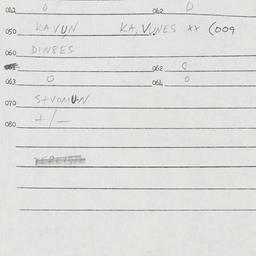 041 0 042 0
050 KAVUN KA, VUNES XX (009
060 DINBES
062 0
063 0 064 0
070 STVOMUN
080 +/-